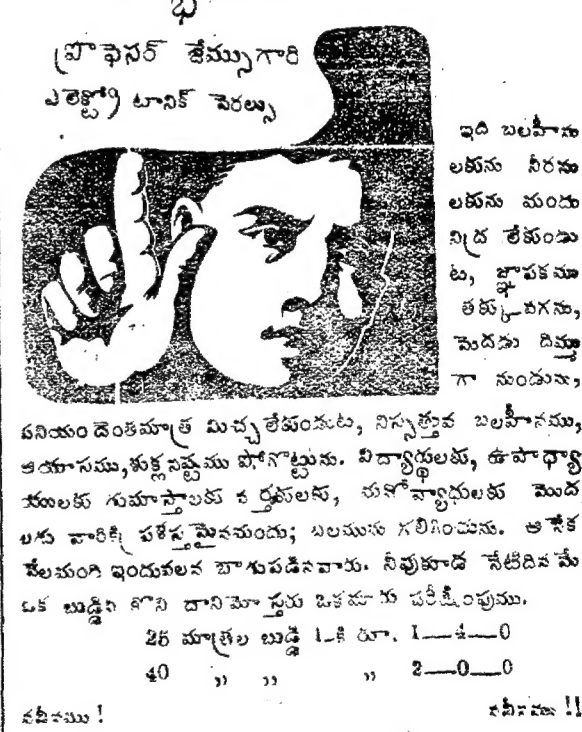 ప్రొఫెసర్ జేమ్సుగారి
ఎలెక్ట్రో టానిక్ పెరల్సు
ఇది బలహీను
లకును నీరసు
లకును మందు
నిద్ర లేకుండు
ట, జ్ఞాపకము
తక్కువగను,
మెదడు దిమ్ము
గా నుండును,
పనియం దెంతమాత్ర మిచ్చలేకుండుట, నిస్సత్తువ బలహీనము,
ఆయాసము, శుక్లనష్టము పోగొట్టును. విద్యార్థులకు, ఉపాధ్యా
యులకు గుమాస్తాలకు వర్తకులకు, మొద
లగు వారికి ప్రశస్తమైనమందు; బలమును గలిగించును. అనేక
వేలమంది ఇందువలన బాగుపడినవారు. నీవుకూడ నేటిదినమే
ఒక బుడ్డిని కొని దానిమోస్తరు ఒకమారు పరీక్షింపుము.
25 మాత్రల బుడ్డి 1-కి రూ. 1—4—0
40 ,, ,, ,, 2—0—0
నవీనము ! నవీనము !!